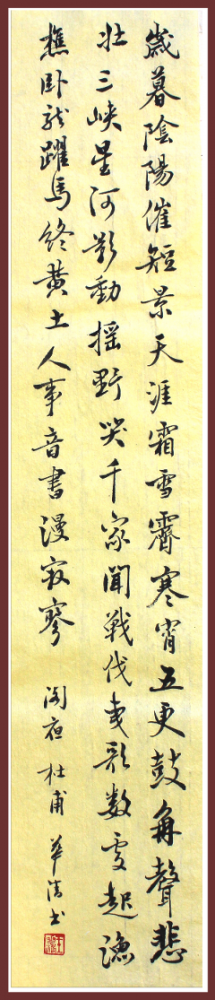 歲暮陰陽催短景天涯霜雪霽寒宵五更鼓角聲悲
壯三峽星河影動搖野哭千家聞戰伐夷歌數處起漁
樵臥龍躍馬終黃土人事音書漫寂寥 閣夜 杜甫 華清书